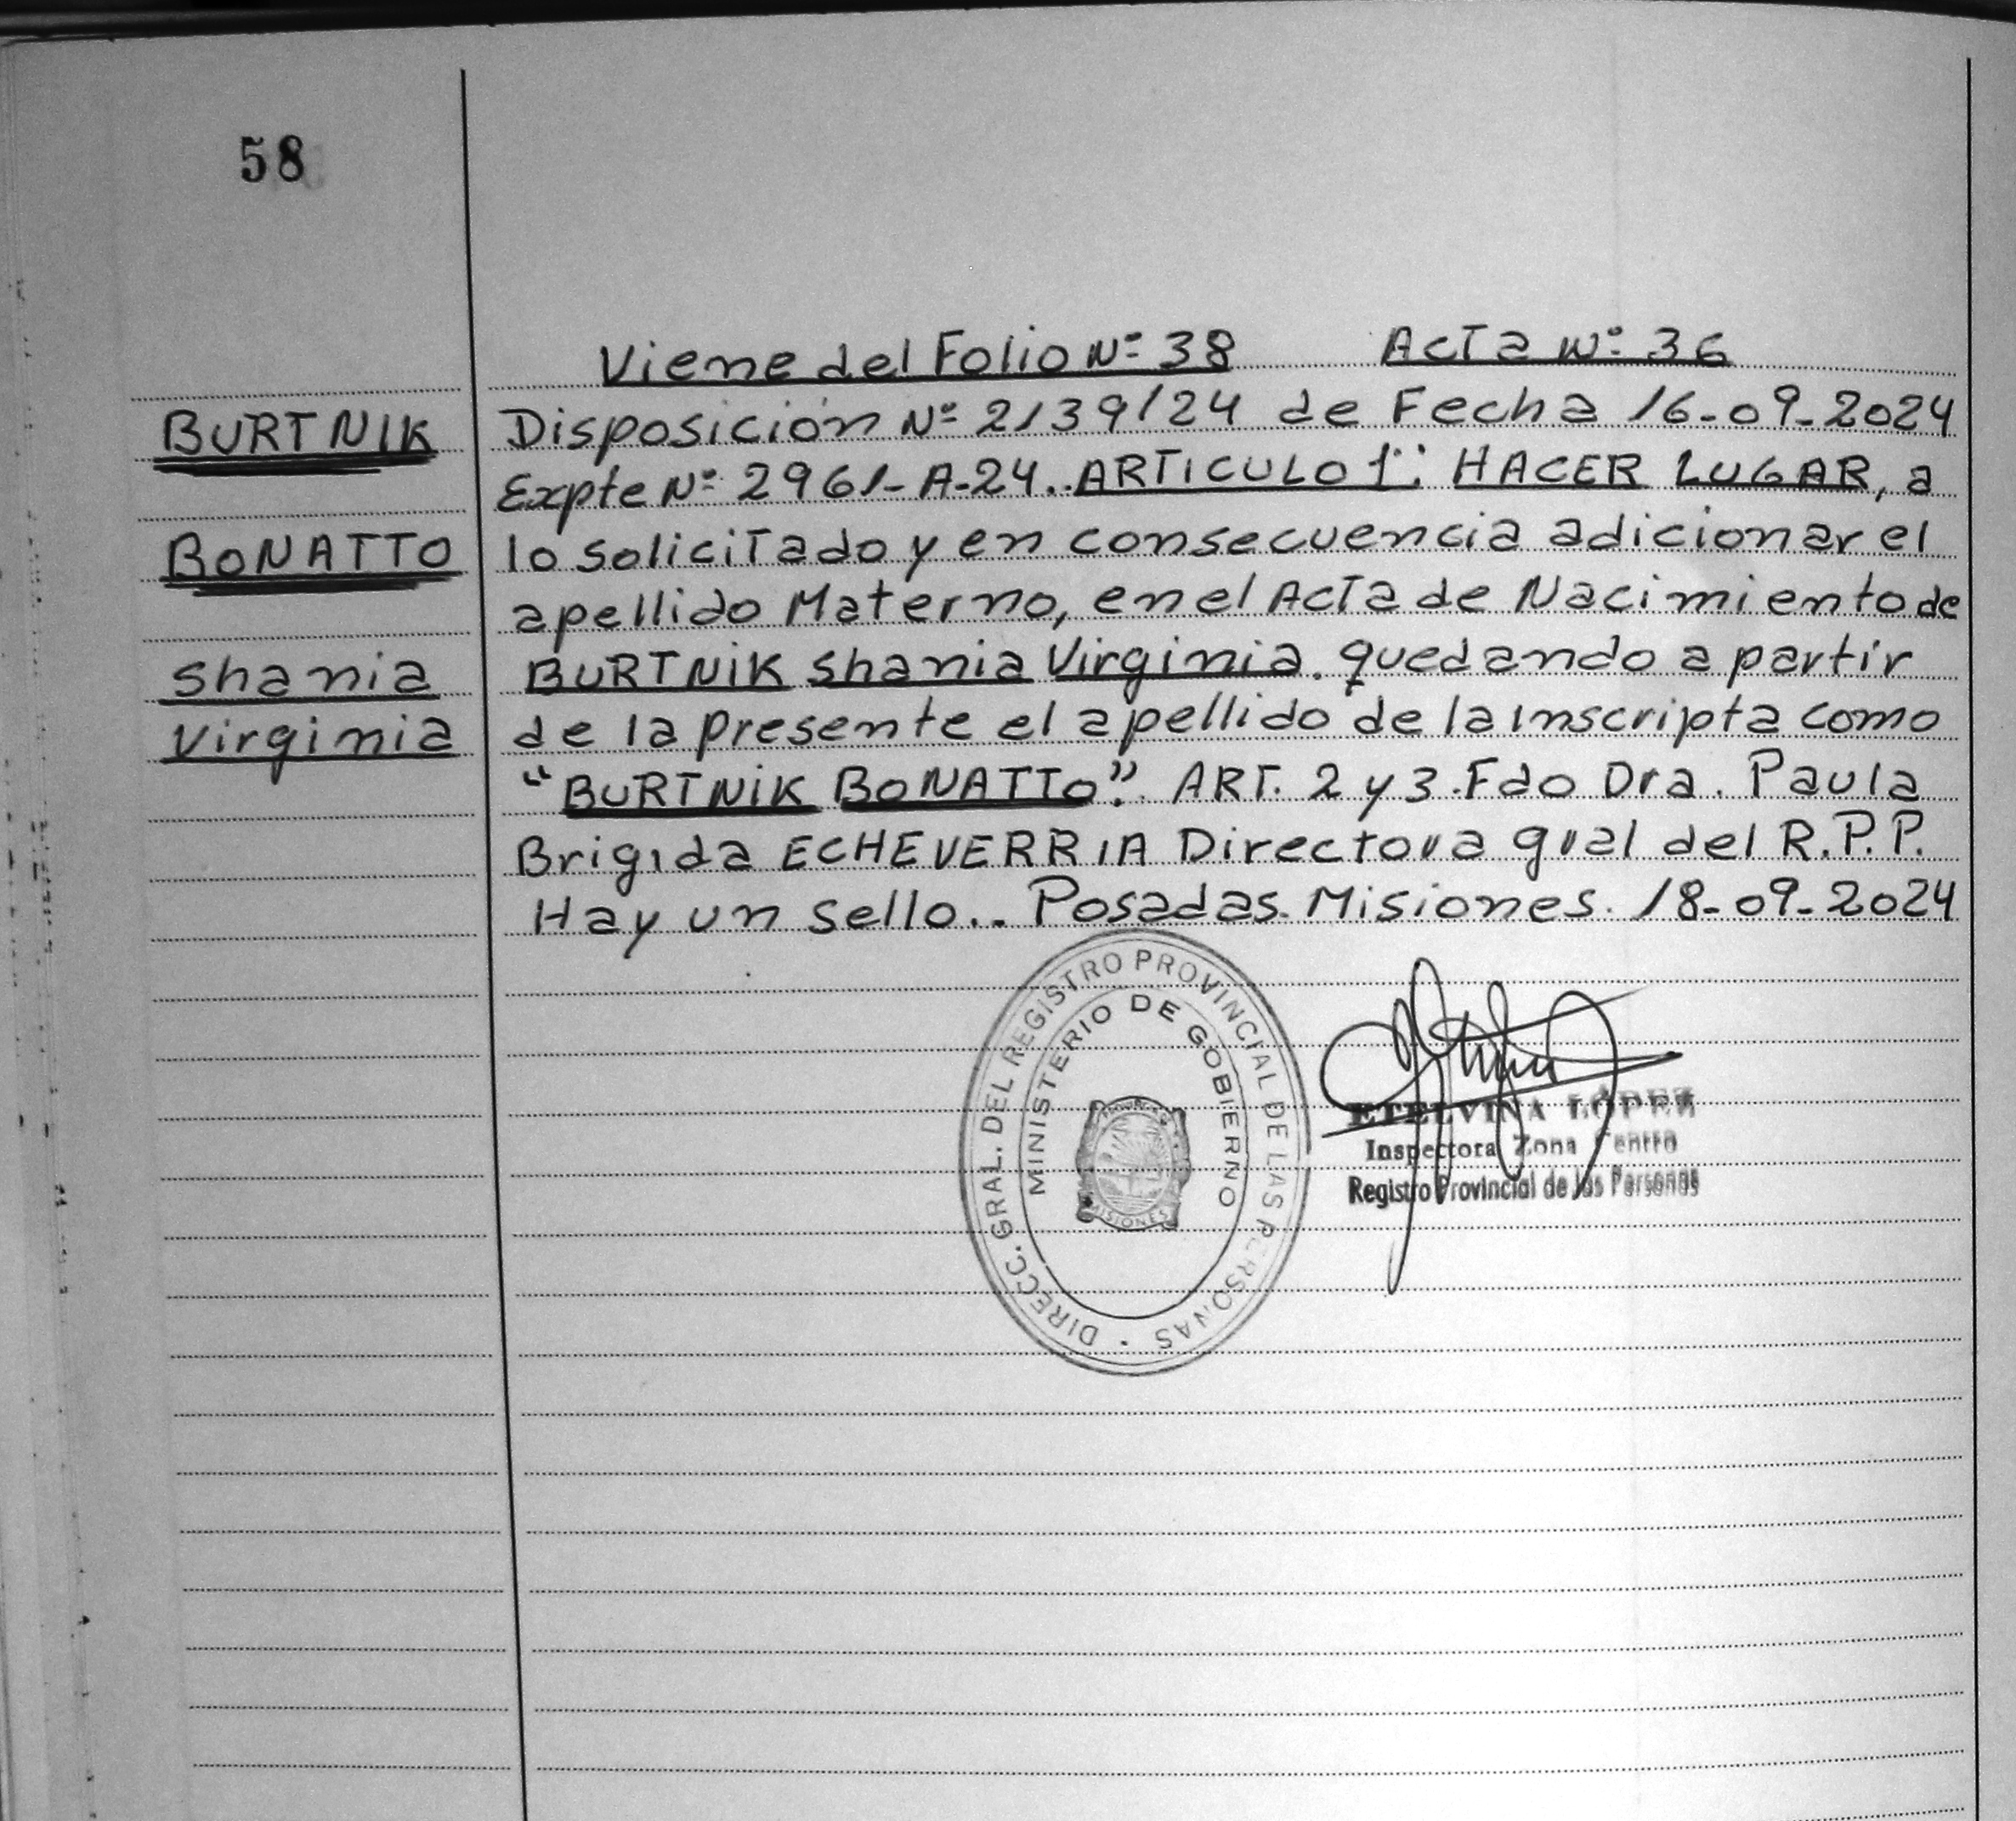 58
Viene del Folio Nº 38 Acta Nº 36
BURTNIK
BONATTO
Shania
Virginia
Disposición Nº 2139/24 de Fecha 16-09-2024
Expte Nº 2961-A-24. ARTICULO 1º: HACER LUGAR, a
lo solicitado y en consecuencia adicionar el
apellido Materno, en el Acta de Nacimiento de
BURTNIK Shania Virginia. quedando a partir
de la presente el apellido de la inscripta como
"BURTNIK BONATTO". ART. 2 y 3. Fdo Dra. Paula
Brigida ECHEVERRIA Directora gral del R.P.P.
Hay un sello.. Posadas. Misiones. 18-09-2024
DIRECC. GRAL. DEL REGISTRO PROVINCIAL DE LAS PERSONAS
MINISTERIO DE GOBIERNO
MISIONES
ETELVINA LÓPEZ
Inspectora Zona Centro
Registro Provincial de las Personas